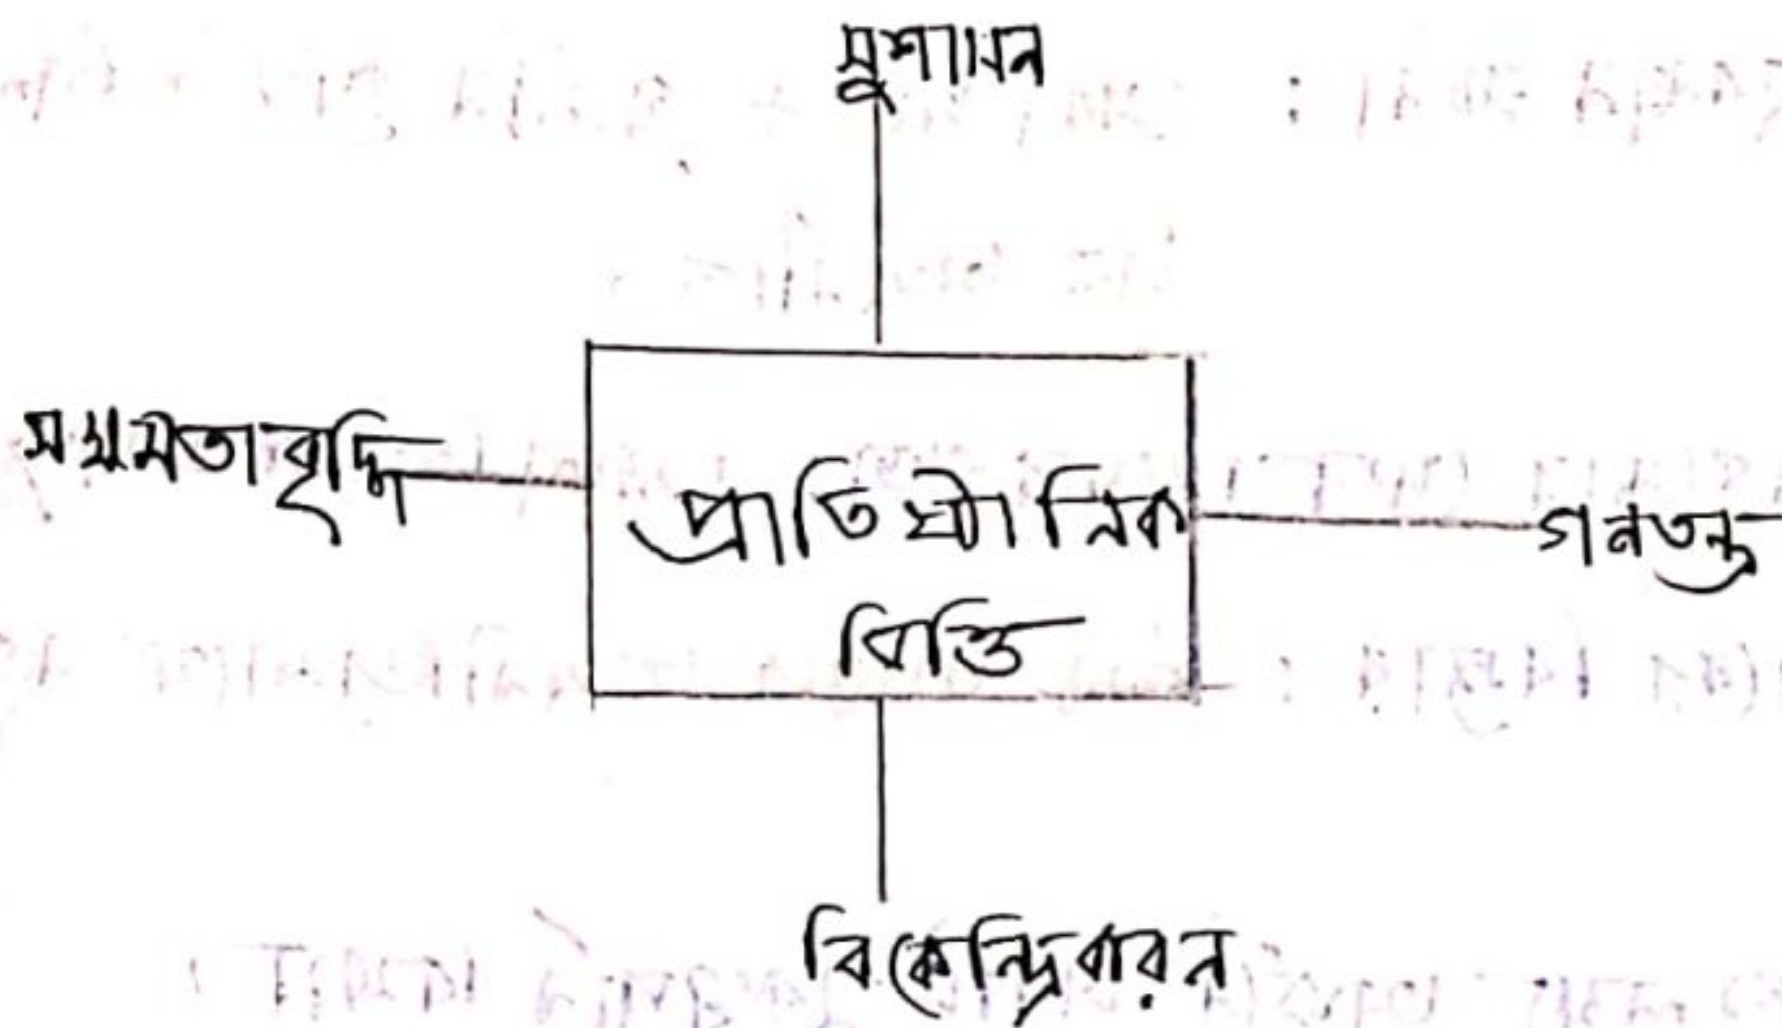 সুশাসন
সক্ষমতাবৃদ্ধি
প্রাতিষ্ঠানিক
বিত্তি
গনতন্ত্র
বিকেন্দ্রিকরন